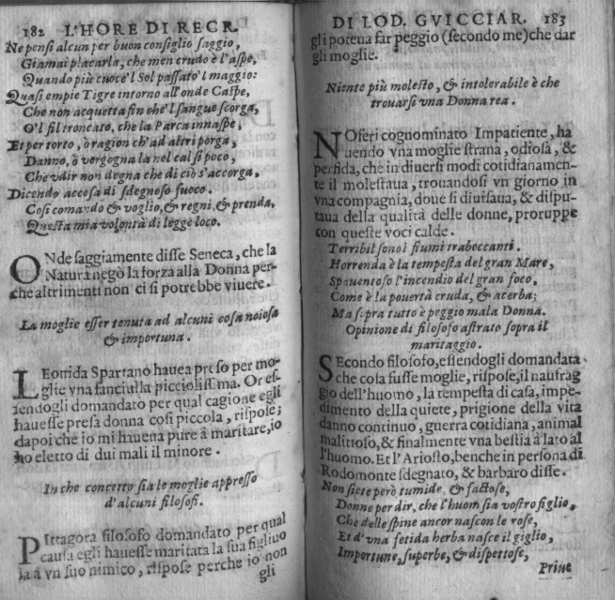 182 L'HORE DI RECR.
Ne pensi alcun per buon consiglio saggio,
Giamai placarla, che men crudo è l'aspe,
Quando più cuoce'l Sol passato'l maggio:
Quasi empie Tigre intorno all'onde Caspe,
Che non acquetta fin che'l sangue scorga,
O'l fil troncato, che la Parca innaspe,
Et per torto, ò ragion ch'ad altri porga,
Danno, ò vergogna la nel cal si poco,
Che vdir non degna che di ciò s'accorga.
Dicendo accesa di sdegnoso fuoco.
Cosi comando & voglio, & regni, & prenda,
Questa mia volontà di legge loco.
ONde saggiamente disse Seneca, che la
Natura negò la forza alla Donna per-
che altrimenti non ci si potrebbe viuere.
La moglie esser tenuta ad alcuni cosa noiosa
& importuna.
LEonida Spartano hauea preso per mo-
glie vna fanciulla picciolissima. Or es-
sendogli domandato per qual cagione egli
hauesse presa donna cosi piccola, rispose;
dapoi che io mi hauena pure à maritare, io
ho eletto di dui mali il minore.
In che concetto sia le moglie appresso
d'alcuni filosofi.
PIttagora filosofo domandato per qual
causa egli hauesse maritata la sua figliuo
la à vn suo nimico, rispose perche io non
gli
DI LOD. GVICCIAR. 183
gli poteua far peggio (secondo me) che dar
gli moglie.
Niente più molesto, & intolerabile è che
trouarsi vna Donna rea.
NOferi cognominato Impatiente, ha
uendo vna moglie strana, odiosa, &
perfida, che in diuersi modi cotidianamen-
te il molestaua, trouandosi vn giorno in
vna compagnia, doue si diuisaua, & dispu-
taua della qualità delle donne, proruppe
con queste voci calde.
Terribil sono i fiumi traboccanti.
Horrenda è la tempesta del gran Mare,
Spauentoso l'incendio del gran foco,
Come è la pouertà cruda, & acerba;
Ma sopra tutto è peggio mala Donna.
Opinione di filosofo astrato sopra il
maritaggio.
SEcondo filosofo, essendogli domandata
che cola fusse moglie, rispose, il naufrag
gio dell'huomo, la tempesta di casa, impe-
dimento della quiete, prigione della vita
danno continuo, guerra cotidiana, animal
malitioso, & finalmente vna bestia à lato al
l'huomo. Et l'Ariosto, benche in persona di
Rodomonte sdegnato, & barbaro disse.
Non siete però tumide, & fastose,
Donne per dir, che l'huom sia vostro figlio,
Che delle spine ancor nascon le rose,
Et d'vna fetida herba nasce il giglio,
Importune, superbe, & dispettose,
Priue